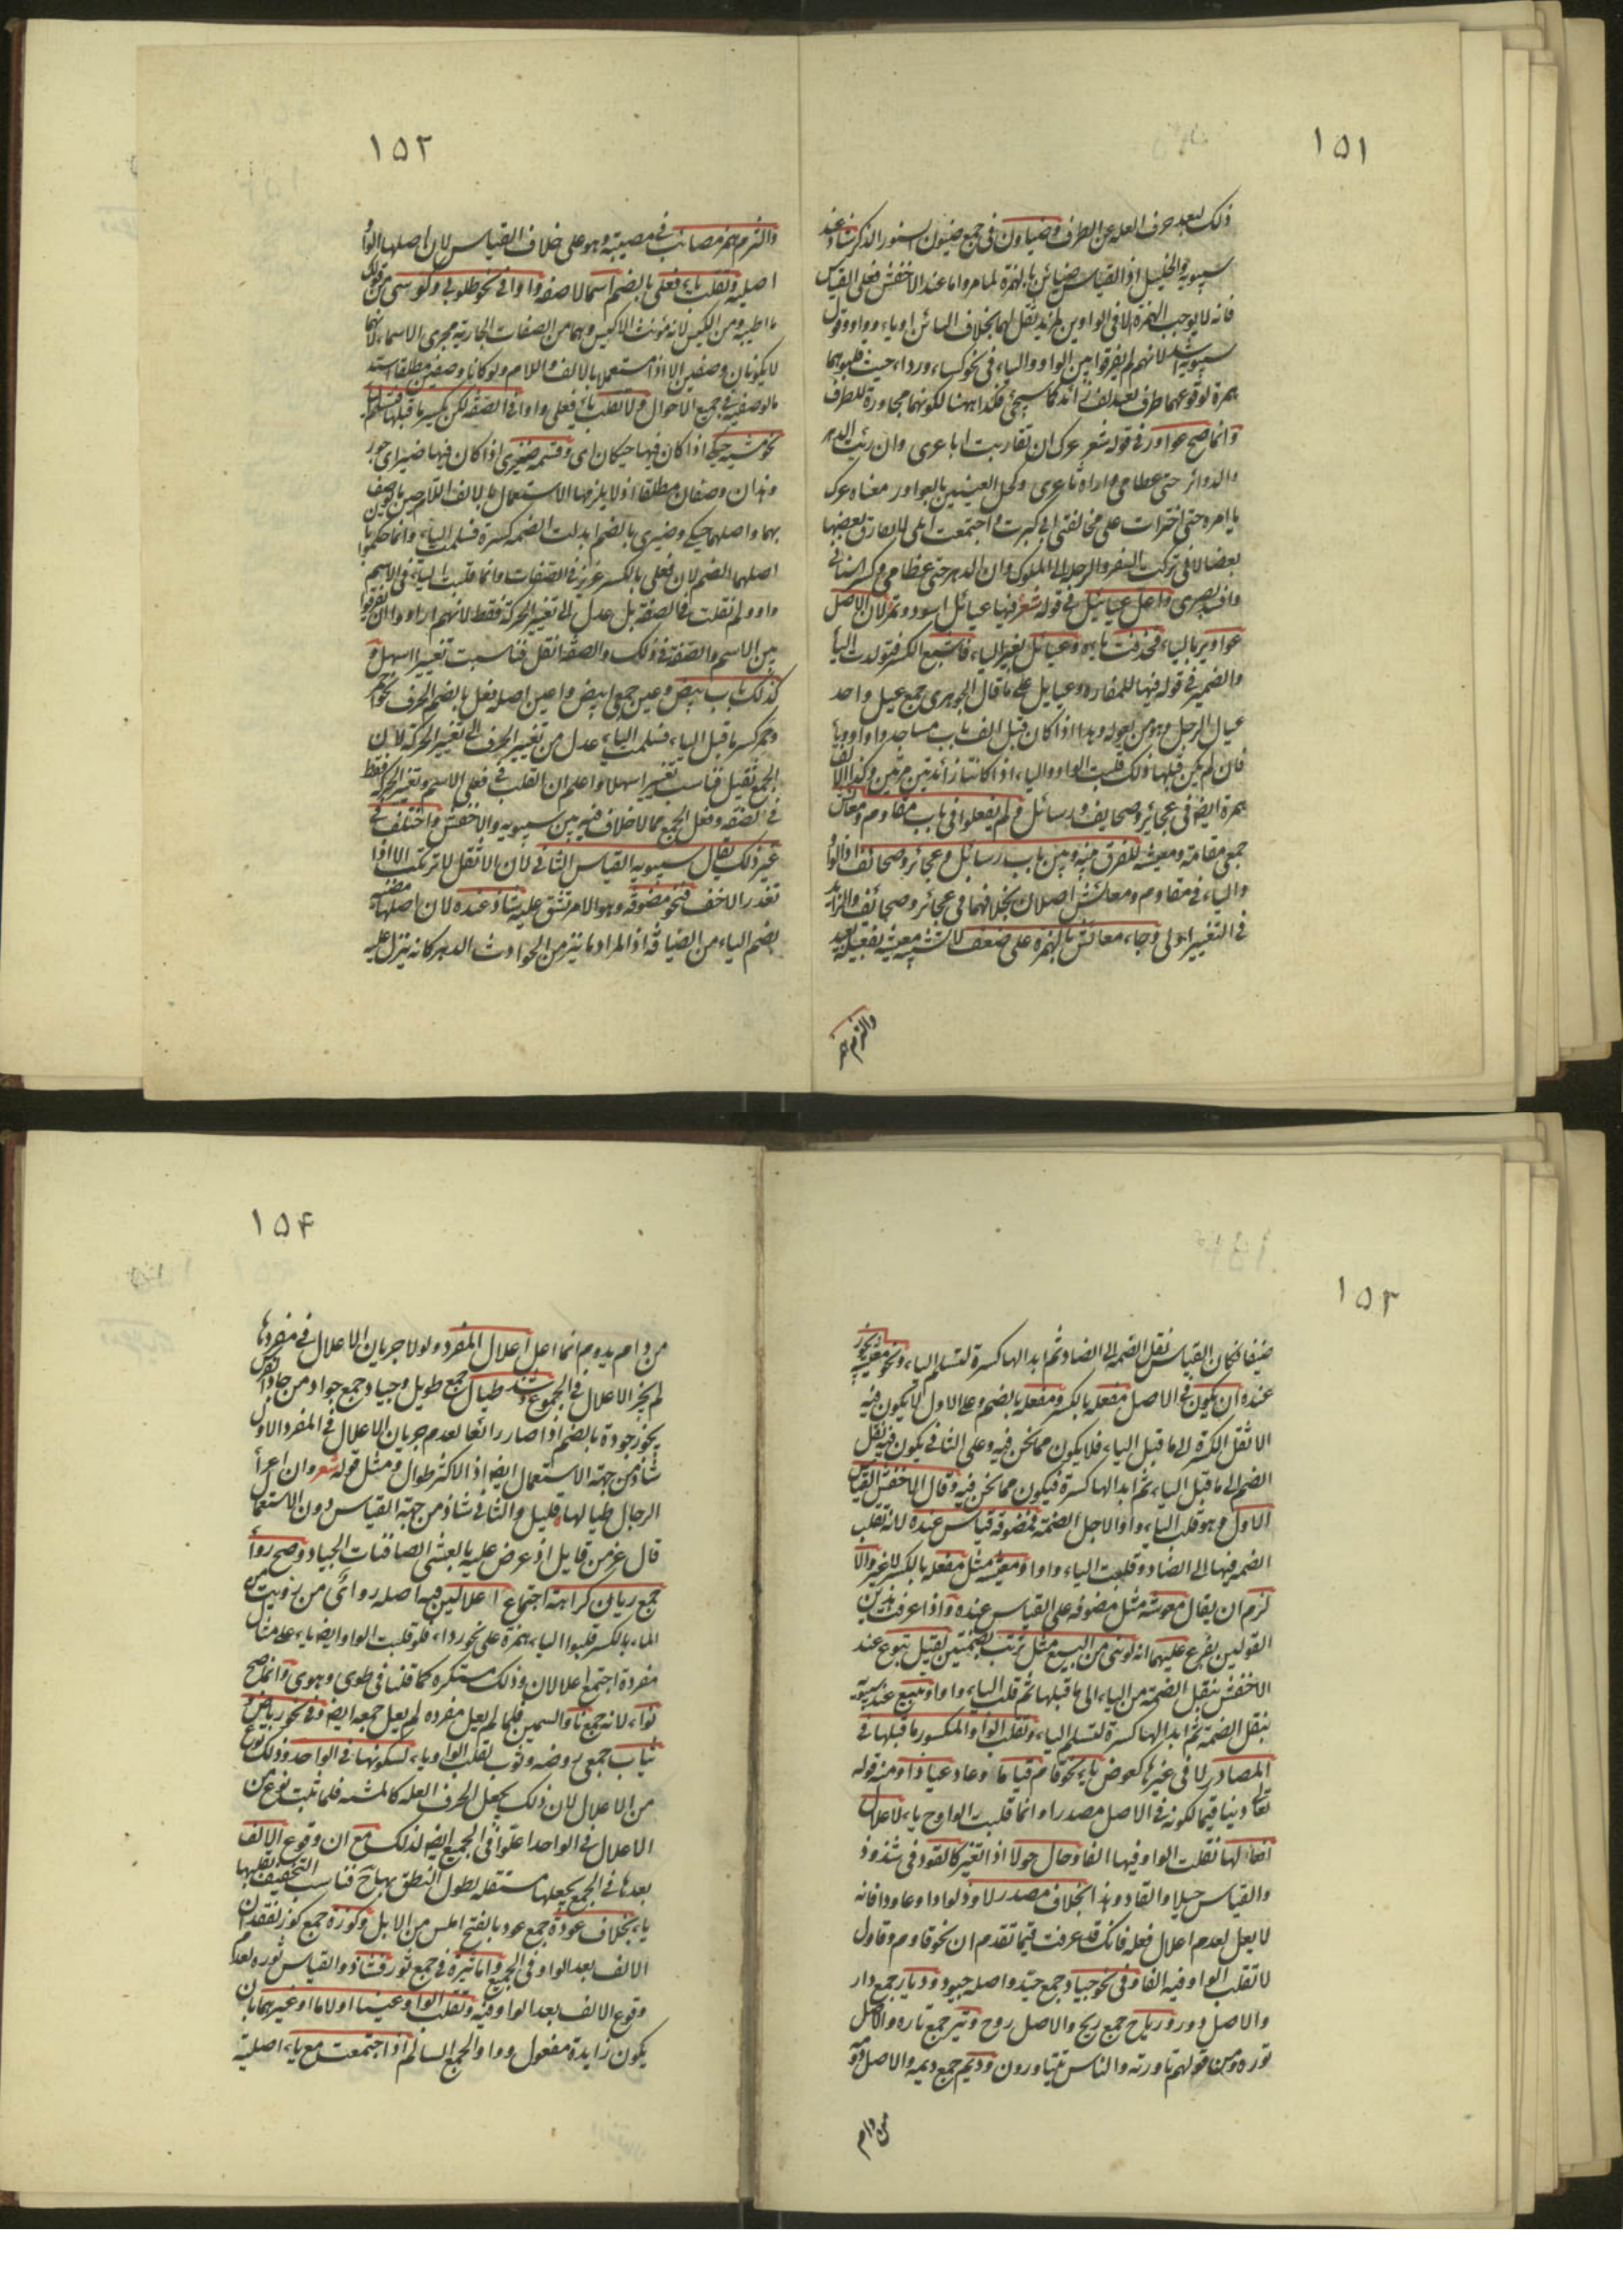 ١٥١
ذلك لبعد حرف العلة عن الطرف وضياون في جمع ضيون لسنور الذكر شاذ عند
سيبويه والخليل اذ القياس ضيائن بالهمزة لما مر واما عند الاخفش فعلى القياس
فانه لا يوجب الهمزة الا في الواوين لمزيد ثقلهما بخلاف اليائين او ياء وواو وقول
سيبويه لانهم لم يفرقوا بين الواو والياء في نحو كساء ورداء حيث قلبوهما
همزة لوقوعهما طرفا بعد الف زائد كما سيجئ فكذا ههنا لكونهما مجاورة للطرف
وانما صح عواور في قوله شعر غرك ان تقاربت اباعرى وان رئيت الدهر
والدوائر حتى عظامي واراه ثاغرى وكحل العينين بالعواور معناه غرك
يا امره حتى اخترات على مخالفتي اني كبرت واجتمعت ابلى لا يفارق بعضها
بعضا لاني تركت السفر والرحل الى الملوك وان الدهر حتى عظامي وكسر اسناني
وافسد بصرى واعل عيائيل في قوله شعر فيها عيائيل اسود ونمر لان الاصل
عواوير بالياء فحذفت ياءه وعيائل بغير الياء فاشبع الكسر فتولدت الياء
والضمير في قوله فيها للمفازة وعيايل على ما قال الجوهرى جمع عيل واحد
عيال الرجل وهو من يعوله وهذا اذا كان قبل الف باب مساجد واو او ياء
فان لم يكن قبلها ذلك قلبت الواو والياء اذا كانتا زائدتين مدتين وكذا الالف
همزة ايضا في عجائز وصحايف ورسائل ولم يفعلوا في باب مقاوم ومعايش
جمعى مقامة ومعيشة للفرق بينه وبين باب رسائل وعجائز وصحائف اذ الواو
والياء في مقاوم ومعائش اصلان بخلافهما في عجائز وصحائف والزايد
في التغيير اولى وجاء معائش بالهمزة على ضعف لا تشبيه معيشة بفعيلة
والتزم همز
١٥٢
والتزم همز مصائب في مصيبة وهو على خلاف القياس لان اصلها الواو
اصلية وتقلب ياء فعلى بالضم اسما لا صفة واوا في نحو طوبى وكوسى من قولك
ما اطيبه ومن الكيس لانه مؤنث الاكيس وهما من الصفات الجارية مجرى الاسماء لانهما
لا يكونان وصفين الا اذا استعملا بالالف واللام ولو كانا وصفين مطلقا استبد
بالوصفية في جميع الاحوال ولا تقلب ياء فعلى واوا في الصفة لكن يكسر ما قبلها فتسلم الياء
نحو مشية حيكى اذا كان فيها حيكان اى وقسمة ضيزى اذا كان فيها ضيز اى جور
وهذان وصفان مطلقا اذ لا يلزمها الاستعمال بالالف اللام حين يوصف
بهما واصلهما حيكى وضيزى بالضم ابدلت الضمة كسرة فسلمت الياء وانما حكموا بان
اصلهما الضم لان فعلى بالكسر عزيز في الصفات وانما قلبت الياء في الاسم
واوا ولم تقلب في الصفة بل عدل الى تغيير الحركة فقط لانهم ارادوا ان يفرقوا
بين الاسم والصفة في ذلك والصفة اثقل فناسبت تغييرا اسهل و
كذلك باب بيض وعين جمعى ابيض واعين اصله فعل بالضم الحرف نحو احمر
وحمر كسر ما قبل الياء فسلمت الياء عدل من تغيير الحرف الى تغيير الحركة لان
الجمع ثقيل فناسب تغييرا سهلا واعلم ان القلب في فعلى الاسم وتغيير الحركة فقط
في الصفة وفعل الجمع مما لا خلاف فيه بين سيبويه والاخفش واختلف في
غير ذلك فقال سيبويه القياس الثاني لان بالاثقل لا تركب الا اذا
تعذر الاخف فنحو مضوفة وهو الامر يشق عليه شاذ عنده لان اصلها مضيفة
بضم الياء من الضيافة اذ المراد ما ينزل من الحوادث الدهر كانه ينزل عليه
١٥٣
ضيفا فكان القياس نقل الضمة الى الضاد ثم ابدالها كسرة لتسلم الياء ونحو معيشة يجوز
عنده ان يكون في الاصل مفعلة بالكسر ومفعلة بالضم وعلى الاول لا يكون فيه
الا نقل الكسرة الى ما قبل الياء فلا يكون مما نحن فيه وعلى الثاني يكون فيه نقل
الضم الى ما قبل الياء ثم ابدالها كسرة فيكون مما نحن فيه وقال الاخفش القياس
الاول وهو قلب الياء واوا لاجل الضمة فمضوفة قياس عنده لانه تقلب
الضمة فيها الى الضاد وقلبت الياء واوا ومعيشة مثل مفعلة بالكسر لا غير والا
لزم ان يقال معوشة مثل مضوفة على القياس عنده واذا عرفت هذين
القولين يفرع عليهما انه لو بنى من البيع مثل ترتب بضمتين لقيل تبوع عند
الاخفش بنقل الضمة من الياء الى ما قبلها ثم قلب الياء واوا وتبيع عند سيبويه
بنقل الضمة ثم ابدالها كسرة لتسلم الياء وتقلب الواو المكسور ما قبلها في
المصادر لا في غيرها كعوض ياء نحو قام قياما وعاذ عياذا ومنه قوله
تعالى دينا قيما لكونه في الاصل مصدرا وانما قلبت الواو ح ياء لاعلال
افعالها فقلبت الواو فيها الفا وحال حولا اذا تغير كالقود في شذوذ
والقياس حيلا والقاد وهذا بخلاف مصدر لاوذ لواذا وعاود فانه
لا يعل لعدم اعلال فعله فانك قد عرفت فيما تقدم ان نحو قاوم وقاول
لا تقلب الواو فيه الفا وفي نحو جياد جمع جيد واصله جيود وديار جمع دار
والاصل دور ورياح جمع ريح والاصل روح وتير جمع تارة والاصل
تورة ومن قولهم تاورته والناس يتتاورون وديم جمع ديمة والاصل دومة
من دام
١٥٤
من دام يدوم انما اعل اعلال المفرد ولولا جريان الاعلال في مفردها
لم يجز الاعلال في الجموع وشذ طيال جمع طويل وجياد جمع جواد من جاد الفرس
يجود جودة بالضم اذا صار رائعا لعدم جريان الاعلال في المفرد الاول
شاذ من جهة الاستعمال ايضا اذ الاكثر طوال ومثل قوله شعر وان اعزا
الرجال طيالها قليل والثاني شاذ من جهة القياس دون الاستعمال
قال عز من قايل اذ عرض عليه بالعشى الصافنات الجياد وصح رواء
جمع ريان كراهة اجتماع اعلالين فيه اصله رواى من رويت من
الماء بالكسر قلبوا الياء همزة على نحو رداء فلو قلبت الواو ايضا ياء على مثال
مفردة اجتمع اعلالان وذلك مستكره كما قلنا في طوى وهوى وانما صح
نواء لانه جمع ناو السمين فلما لم يعل مفرده لم يعل جمعه ايضا وفي نحو رياض و
ثياب جمعى روضة وثوب تقلب الواو ياء لسكونها في الواحد وذلك نوع
من الاعلال لان ذلك يجعل الحرف العلة كالميتة فلما ثبت نوع من
الاعلال في الواحد اعلوا في الجمع ايضا لذلك مع ان وقوع الالف
بعدها في الجمع يجعلها مستثقلة لطول النطق بها ح فناسب التخفيف بقلبها
ياء بخلاف عودة جمع عود بالفتح المسن من الابل وكوزة جمع كوز لفقدان
الالف بعد الواو في الجمع واما ثيرة في جمع ثور فشاذ والقياس ثورة لعدم
وقوع الالف بعد الواو فيه وتقلب الواو عينا او لاما او غيرهما بان
يكون زايدة مفعول وواو الجمع السالم اذا اجتمعت مع ياء اصلية